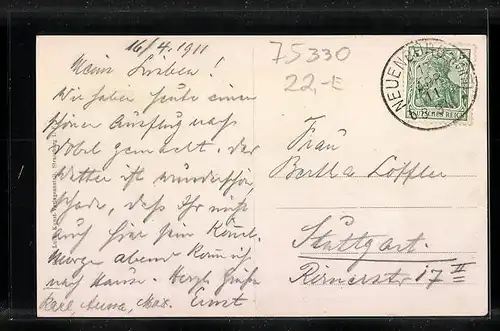 16/4. 1911
75330
22,-E
Meine Lieben!
Wir haben heute einen
schönen Ausflug nach
Dobel gemacht. Das
Wetter ist wunderschön,
schade, daß Ihr nicht
auch hier sein könnt.
Morgen abend komm ich
nach Hause. Herzl. Grüße
Karl, Anna, Max. Ernst
NEUENBÜRG
DEUTSCHES REICH
Frau
Bertha Löffler
Stuttgart.
Römerstr 17 II